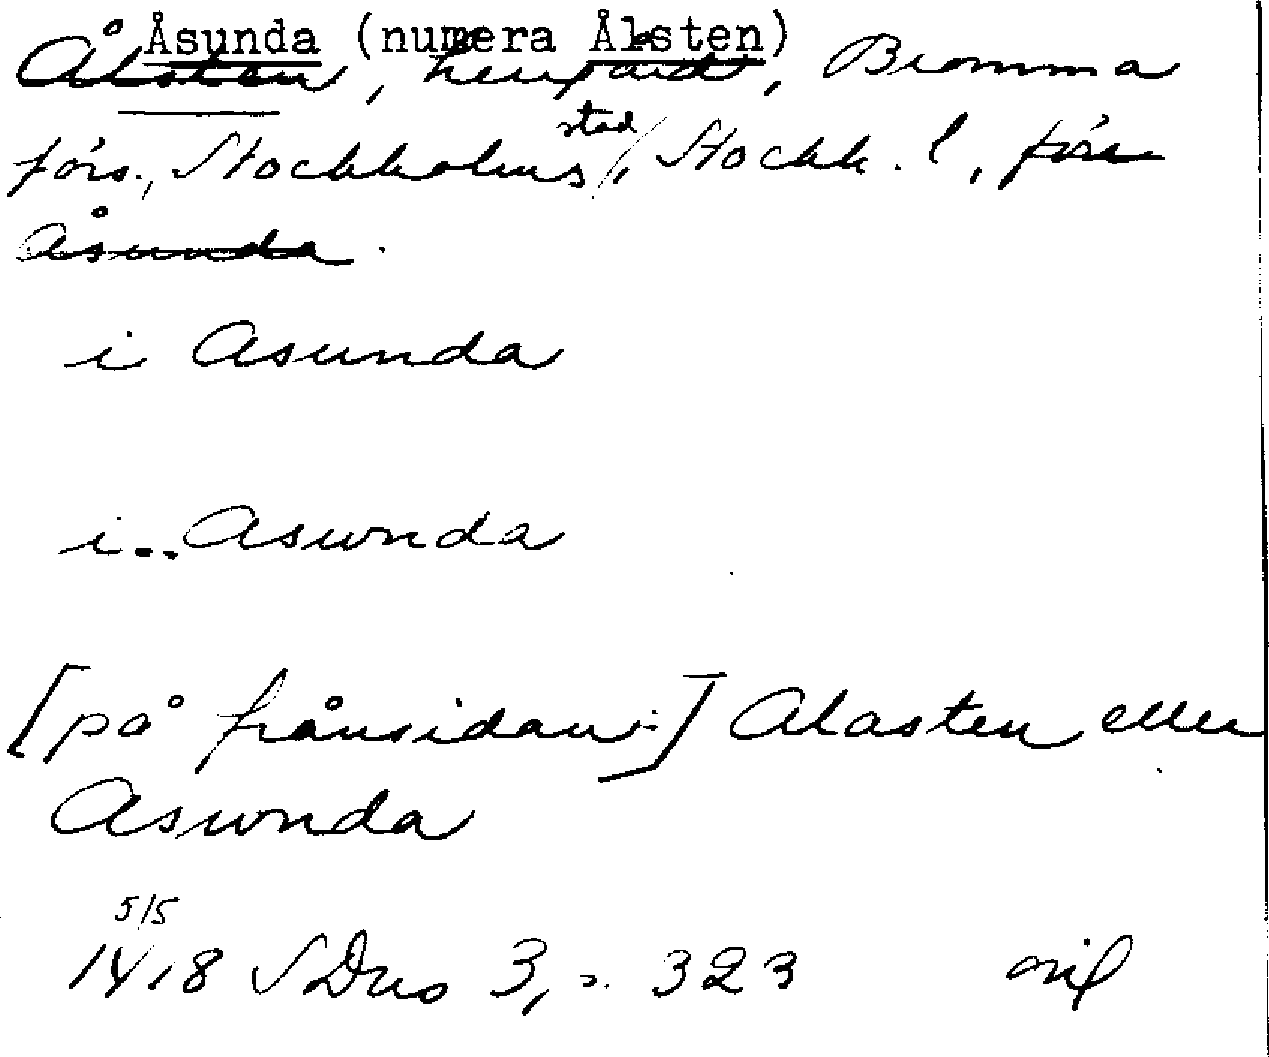 Åsunda (numera Ålsten)
Ålsten, herrgård, Bromma
stad
förs., Stockholms, Stockh. l, förr
Åsunda.
i Asunda
i.. Asunda
[på frånsidan:] Alasten eller
Asunda
5/5
1418 SDns 3, s. 323